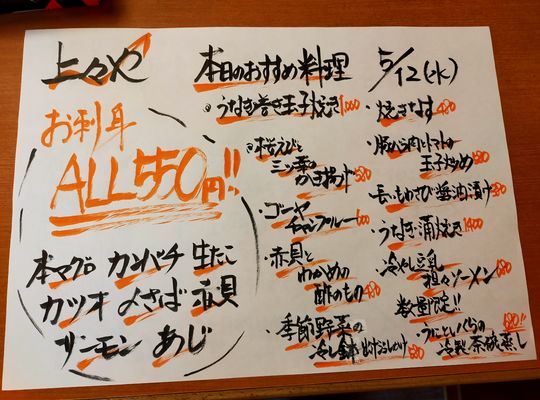 上々や
本日のおすすめ料理
5/12(水)
お刺身
ALL550円!!
本マグロ カンパチ 生たこ
カツオ 〆さば 赤貝
サーモン あじ
うなぎ巻き玉子焼き 1,000
桜えびと
三ツ葉の
かき揚げ 580
・ゴーヤ
チャンプルー 600
・赤貝と
わかめの
酢のもの 480
・季節野菜の
冷し鉢
・焼きなす 480
・豚バラ肉とトマトの
玉子炒め
・長いもわさび醤油漬け
・うなぎ蒲焼き 1400
・冷やし豆乳
担々ソーメン
数量限定!!
・うにといくらの
冷製茶碗蒸し